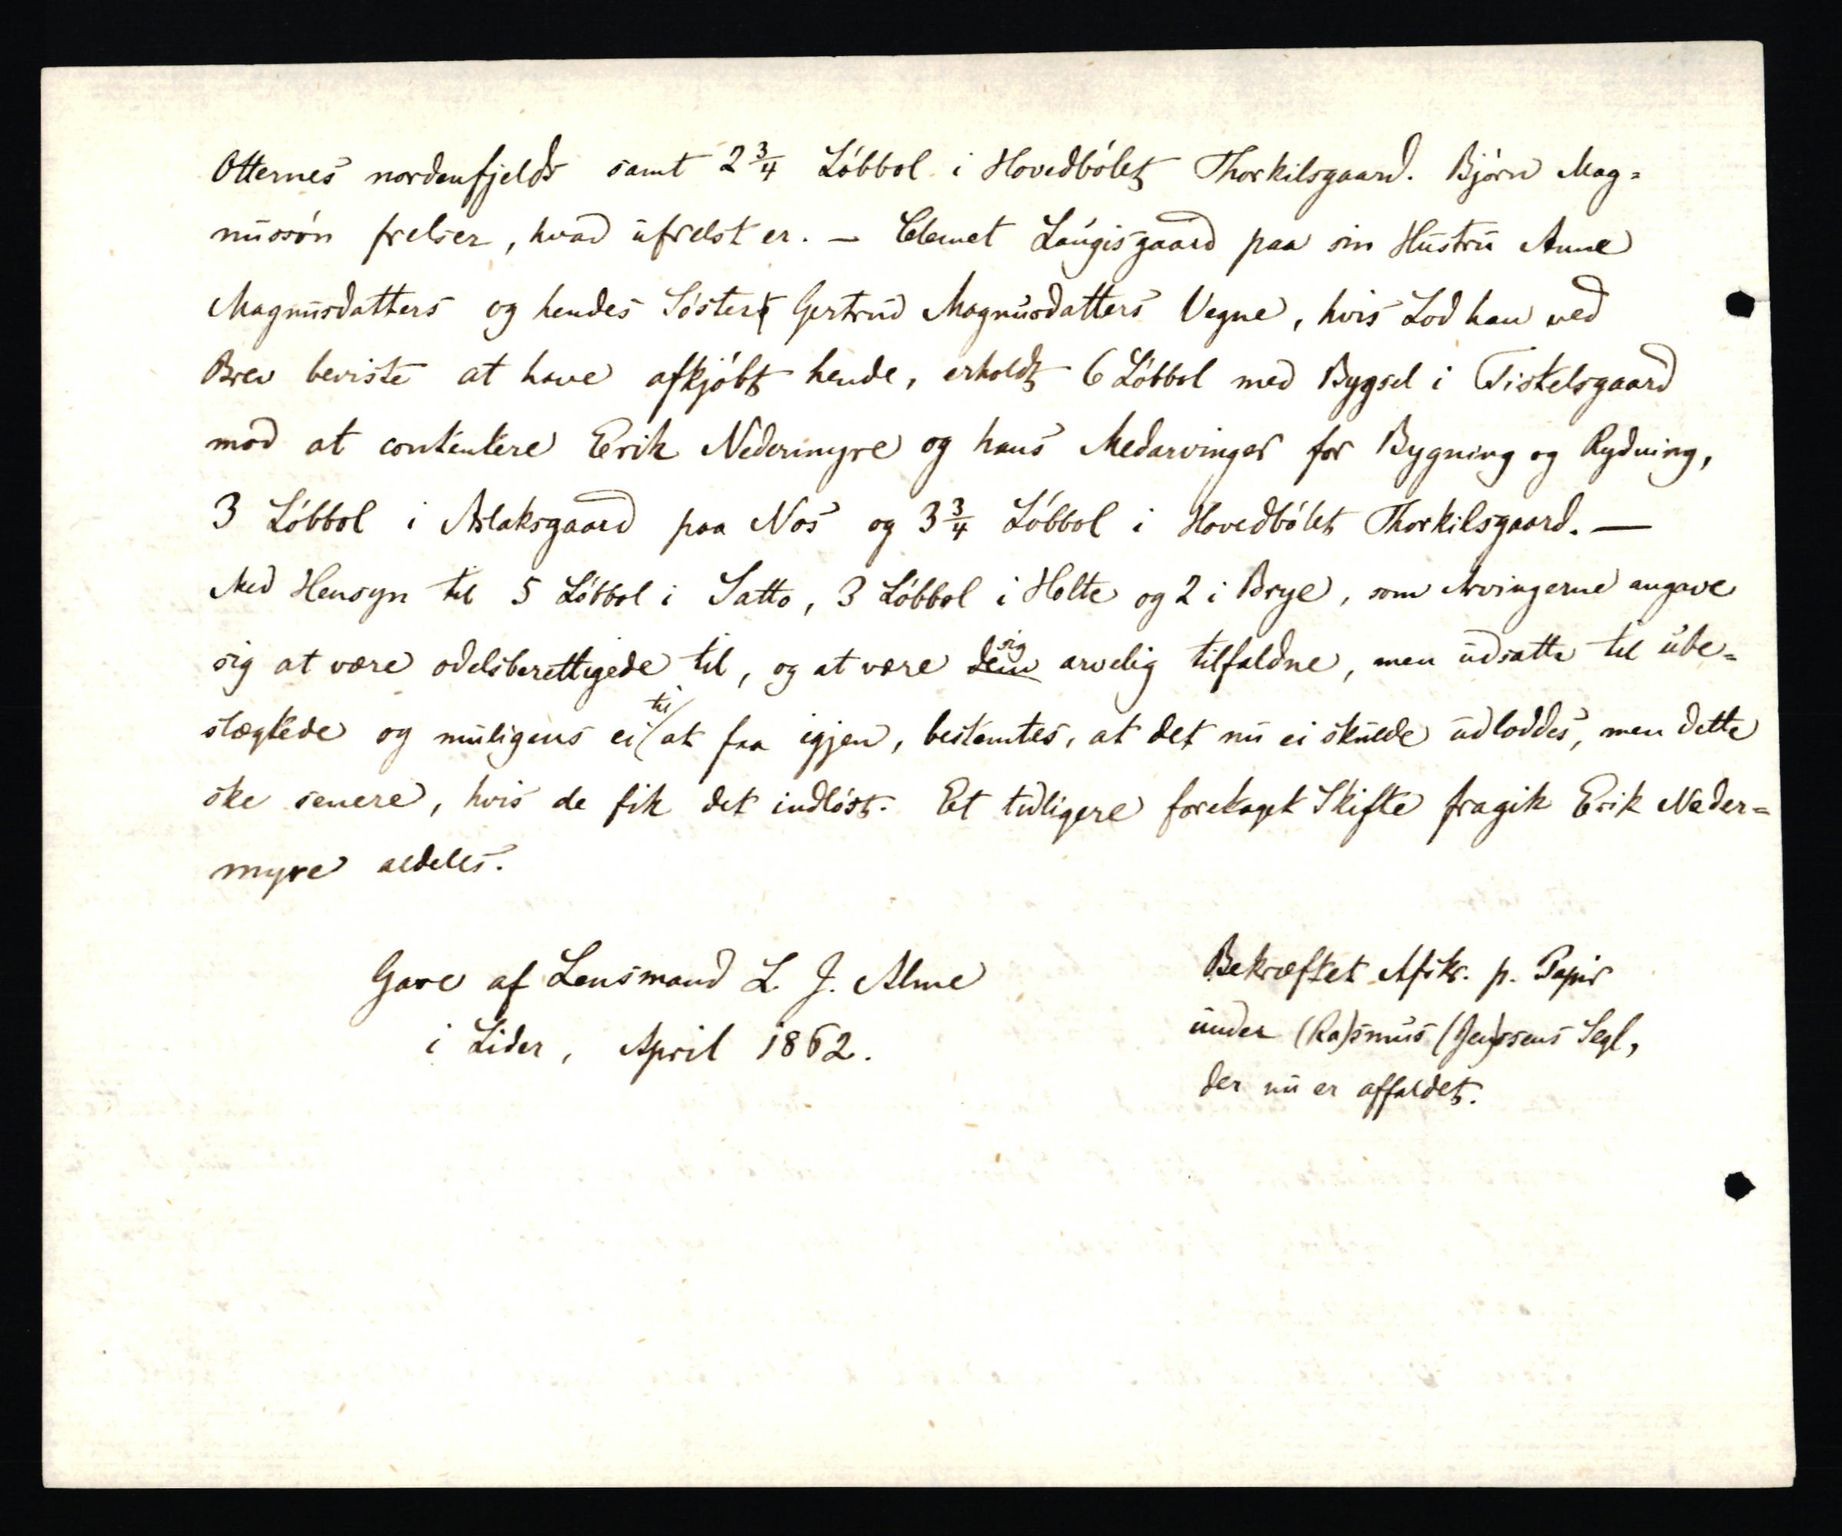 Otternes nordenfjelds samt 2 3/4 Löbbol i Hovedbölet Thorkilsgaard. Björn Mag=
nussön frelser, hvad ufrelst er. – Clemet Laugisgaard paa sin Hustru Anne
Magnusdatters og hendes Söster Gertrud Magnusdatters Vegne, hvis Lod han ved
Brev beviste at have afkjöbt hende, erholdt 6 Löbbol med Bygsel i Tistelsgaard
mod at contentere Erik Nedermyre og hans Medarvinger for Bygning og Rydning,
3 Löbbol i Aslaksgaard paa Nos og 3 3/4 Löbbol i Hovedbölet Thorkilsgaard. —
Med Hensyn til 5 Löbbol i Satto, 3 Löbbol i Holte og 2 i Brye, som Arvingerne angave
sig at være odelsberettigede til, og at være dem sig arvelig tilfaldne, men udsatte til ube=
slægtede og muligens ei til at faa igjen, bestemtes, at det nu ei skulde udloddes, men dette
ske senere, hvis de fik det indlöst. Et tidligere foretaget Skifte fragik Erik Neder=
myre aldeles.
Gave af Lensmand L. J. Alme
i Lider, April 1862.
Bekræftet Afskr. p. Papir
under (Ra)smus (Jen)ssens Segl,
der nu er affaldet.